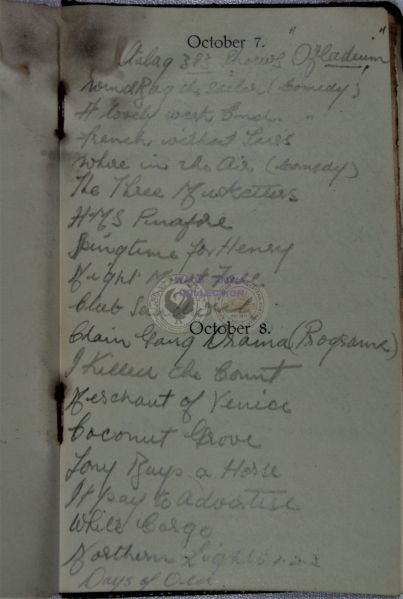 October 7.
Stalag 383 Shows "Ofladium"
Windbag the Sailor (Comedy)
A lovely week end "
French without Tears
Who's in the Air. (Comedy)
The Three Musketeers
HMS Pinafore
Springtime for Henry
Night Must Fall
Club
October 8.
Chain Gang Drama (Programme)
I Killed the Count
Merchant of Venice
Coconut Grove
Tony Buys a Horse
It pays to Advertise
White Cargo
Northern Lights 1-2-3
Days of Old